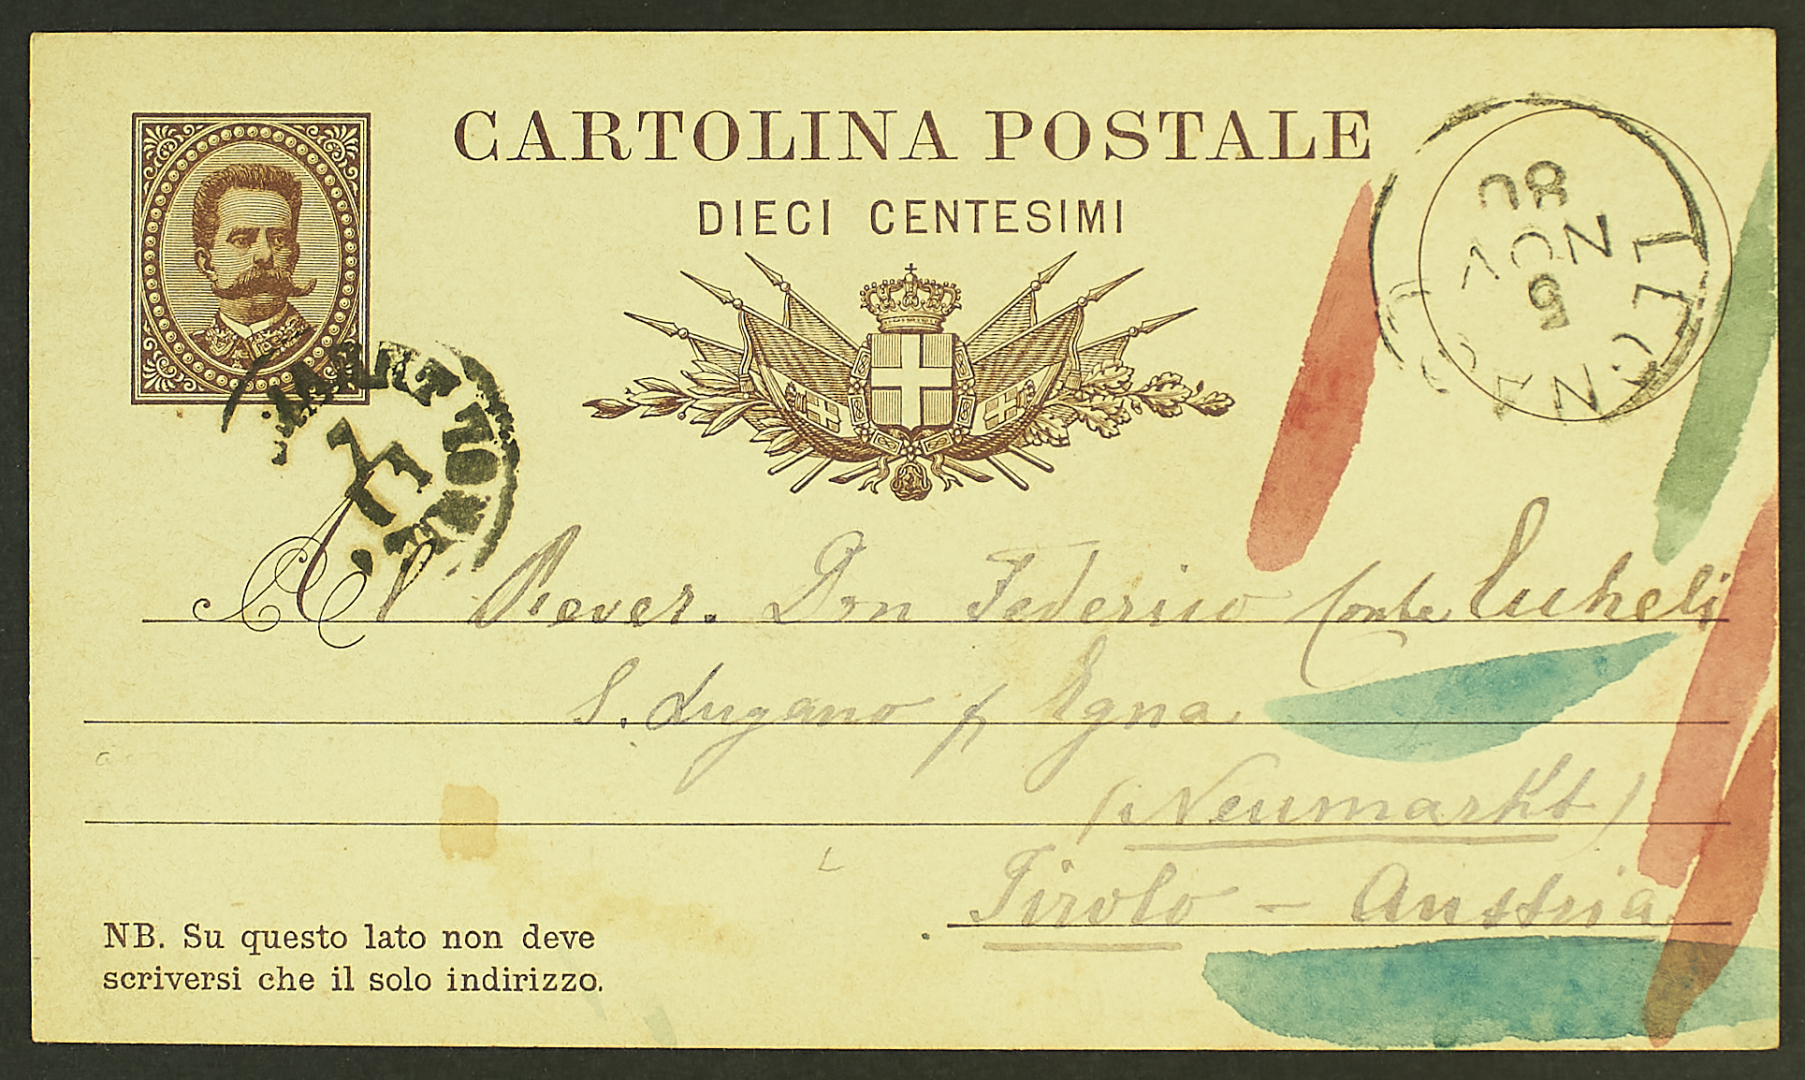 CARTOLINA POSTALE
DIECI CENTESIMI
80
NOV
9
LEGNAGO
11
Al Rever. Don Federico Conte
S. Lugano p. Egna
(Neumarkt)
Tirolo – Austria
NB. Su questo lato non deve
scriversi che il solo indirizzo.